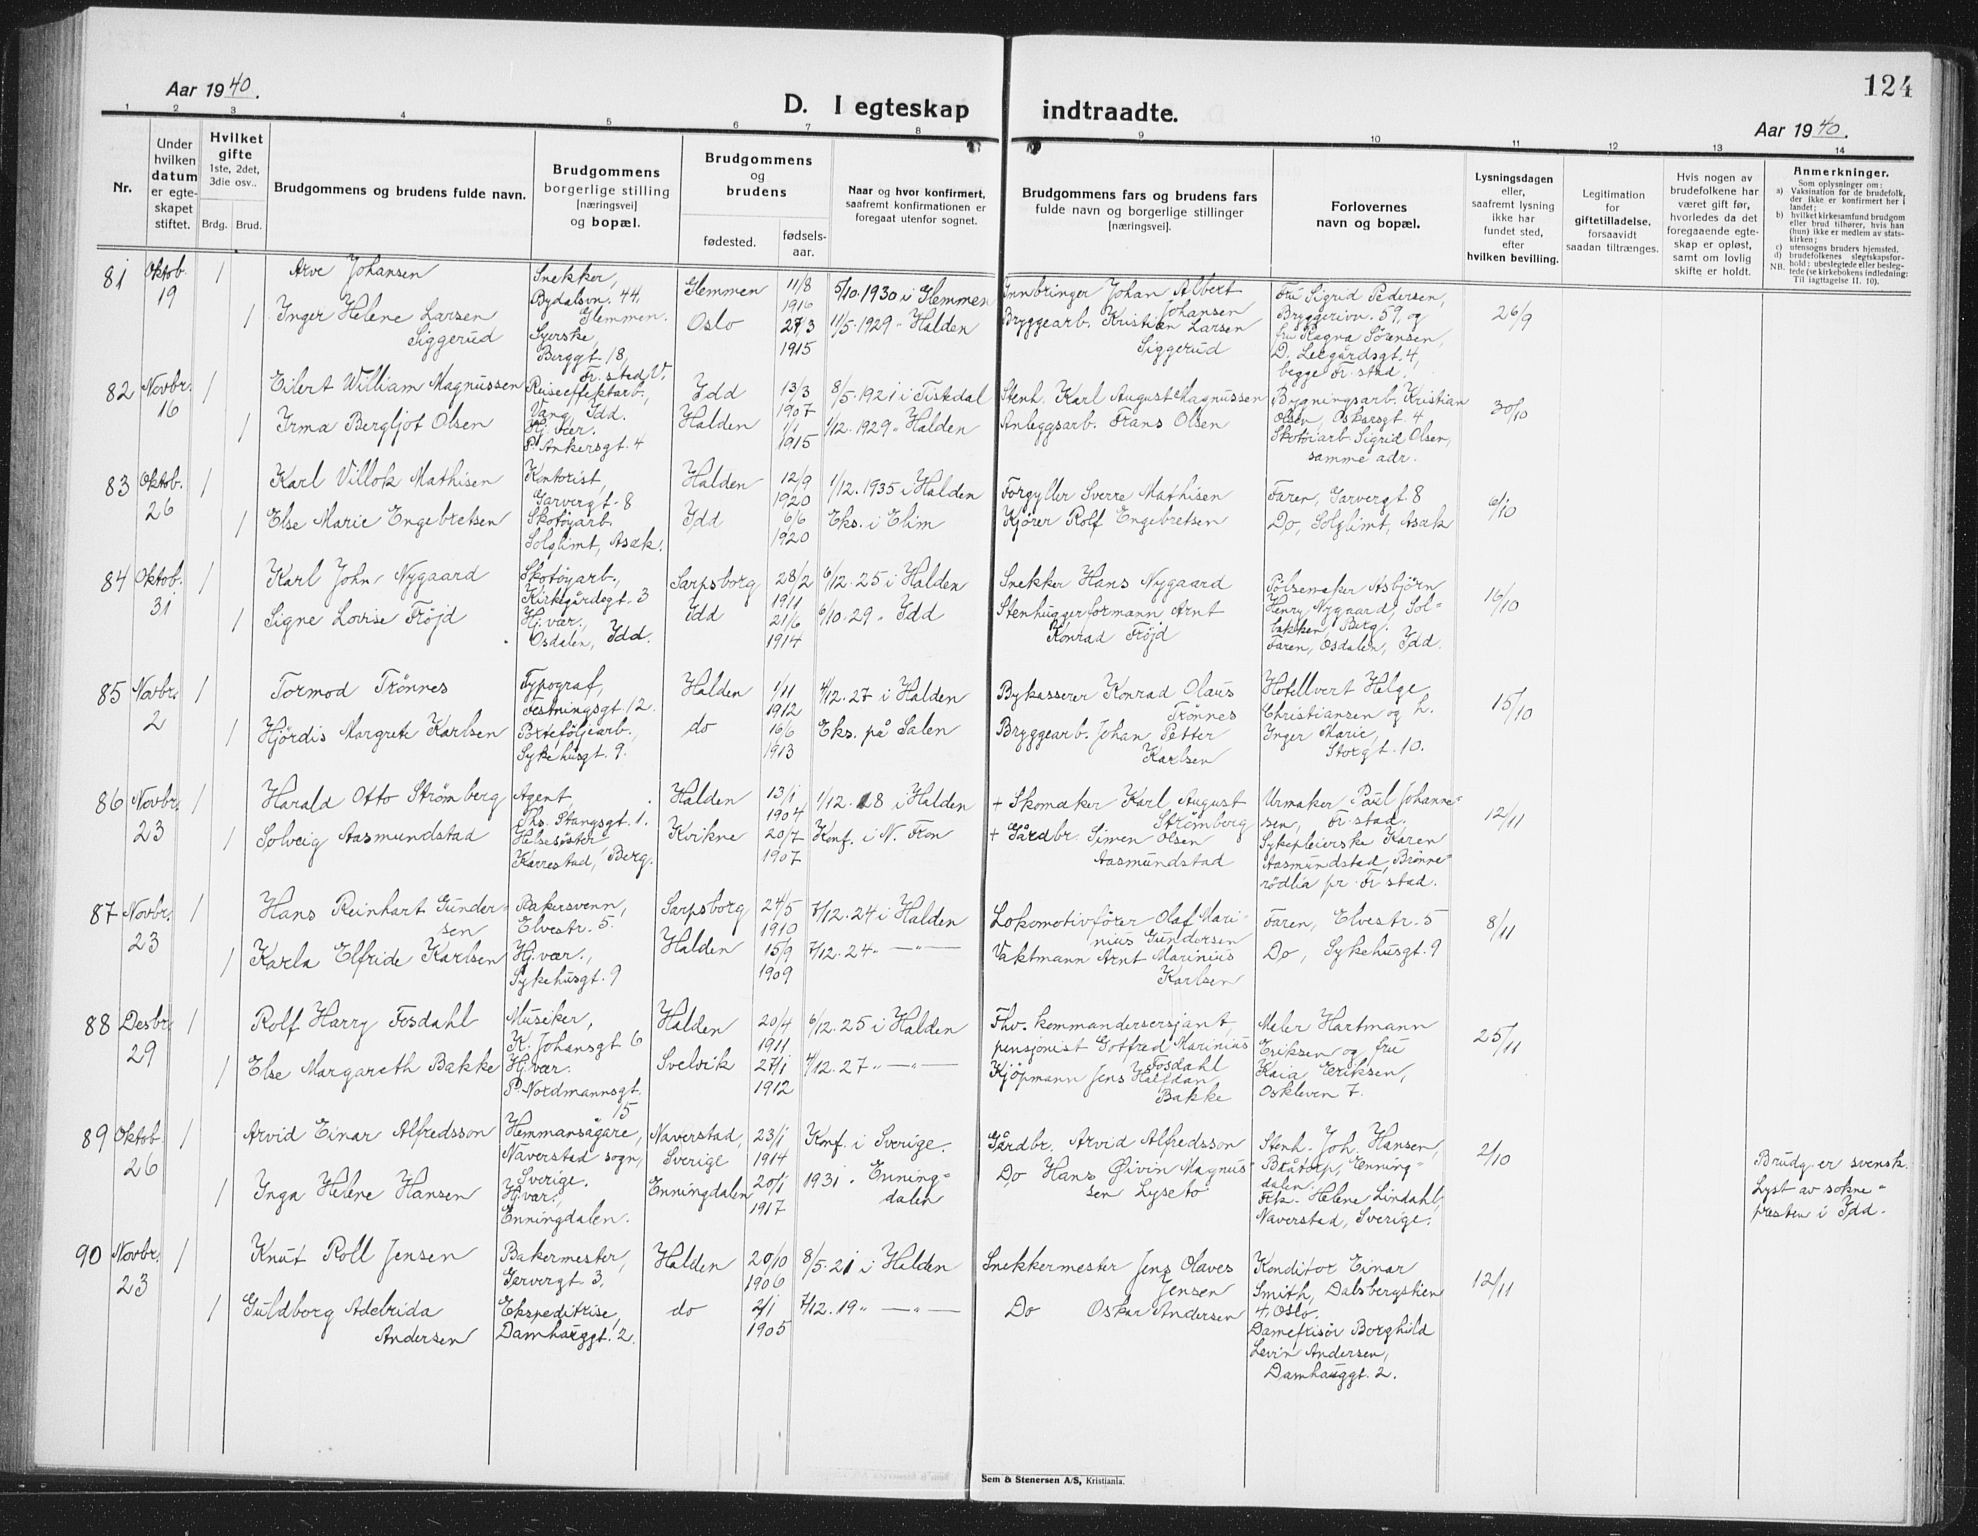 124
Aar 1940.
D. I egteskap indtraadte.
Aar 1940.
1 2 3 4 5 6 7 8 9 10 11 12 13 14
Nr.
Under
hvilken
datum
er egte-
skapet
stiftet.
Hvilket
gifte
1ste, 2det,
3die osv..
Brdg. Brud.
Brudgommens og brudens fulde navn.
Brudgommens
borgerlige stilling
[næringsvei]
og bopæl.
Brudgommens
og
brudens
fødested.
fødsels-
aar.
Naar og hvor konfirmert,
saafremt konfirmationen er
foregaat utenfor sognet.
Brudgommens fars og brudens fars
fulde navn og borgerlige stillinger
[næringsvei].
Forlovernes
navn og bopæl.
Lysningsdagen
eller,
saafremt lysning
ikke har
fundet sted,
efter
hvilken bevilling.
Legitimation
for
giftetilladelse,
forsaavidt
saadan tiltrænges.
Hvis nogen av
brudefolkene har
været gift før,
hvorledes da det
foregaaende egte-
skap er opløst,
samt om lovlig
skifte er holdt.
Anmerkninger.
Som oplysninger om:
a) Vaksination for de brudefolk,
der ikke er konfirmert her i
landet;
b) hvilket kirkesamfund brudgom
eller brud tilhører, hvis han
(hun) ikke er medlem av stats-
kirken;
c) utensogns bruders hjemsted.
d) brudefolkenes slegtskapsfor-
hold; ubeslegtede eller besleg-
tede (se kirkebokens indledning:
NB. Til iagttagelse II. 10).
81 Oktob. 19
1 Arve Johansen
Snekker,
Bydalsvn. 44,
Glemmen.
Glemmen
11/8
1916
5/10. 1930 i Glemmen
Innbringer Johan Albert
Johansen
Fru Sigrid Pedersen,
Bryggerivn. 59, og
fru Ragna Sörensen,
D. Leegårdsgt. 4,
begge Fr.stad.
26/9
1 Inger Helene Larsen
Siggerud
Syerske,
Berggt. 18,
Fr.stad V.
Oslo
27/3
1915
11/5. 1929 " Halden
Bryggearb. Kristian Larsen
Siggerud
82 Novbr. 16
1 Eilert William Magnussen
Reiseeffektarb.,
Vang, Idd.
Idd
13/3
1907
8/5. 1921 i Tistedal
Stenh. Karl August Magnussen
Bygningsarb. Kristian
Olsen, Oskarsgt. 4
Skotöiarb. Sigrid Olsen,
samme adr.
30/10
1 Irma Bergljot Olsen
Hj. vær.
P. Ankersgt. 4
Halden
1/1
1915
1/12. 1929 " Halden
Anleggsarb. Frans Olsen
83 Oktob. 26
1 Karl Villok Mathisen
Kontorist,
Garvergt. 8
Halden
12/9
1920
1/12. 1935 i Halden
Forgyller Sverre Mathisen
Faren, Garvergt. 8
6/10
1 Else Marie Engebretsen
Skotöyarb.
Solglimt, Asak.
Idd
6/6
1920
Eks. i Elim
Kjörer Rolf Engebretsen
Do, Solglimt, Asak
84 Oktob. 31
1 Karl John Nygaard
Skotöyarb.,
Kirkegårdsgt. 3
Sarpsborg
28/2
1911
6/12. 25 i Halden
Snekker Hans Nygaard
Pölsemaker Asbjörn
Henry Nygaard, Sol-
bakken, Berg.
Faren, Osdalen, Idd.
16/10
1 Signe Lovise Fröjd
Hj. vær.,
Osdalen, Idd.
Idd
21/6
1914
6/10. 29 " Idd
Stenhuggerformann Arnt
Konrad Fröjd
85 Novbr. 2
1 Tormod Trönnes
Typograf,
Festningsgt. 12.
Halden
1/11
1912
4/12. 27 i Halden
Bykasserer Konrad Olaus
Trönnes
Hotellvert Helge
Christiansen og h.
Inger Marie,
Storgt. 10.
15/10
1 Hjördis Margrete Karlsen
Porteföljearb.,
Sykehusgt. 9.
do
16/6
1913
Eks. på Salen
Bryggearb. Johan Petter
Karlsen
86 Novbr. 23
1 Harald Otto Strömberg
Agent,
Ths. Stangsgt. 1.
Halden
13/1
1904
1/12. 18 i Halden
+ Skomaker Karl August
Strömberg
Urmaker Paul Johanne-
sen, Fr.stad.
Sykepleierske Karen
Aasmundstad, Brönne-
rödlia pr. Fr.stad.
12/11
1 Solveig Aasmundstad
Helsesöster
Karrestad, Berg.
Kvikne
20/7
1907
Konf. i N. Fron
+ Gårdbr. Simen Olsen
Aasmundstad
87 Novbr. 23
1 Hans Reinhart Gunder-
sen
Bakersvenn,
Elvestr. 5.
Sarpsborg
24/5
1910
7/12. 24 i Halden
Lokomotivförer Olaf Mari-
nius Gundersen
Faren, Elvestr. 5
8/11
1 Karla Elfride Karlsen
Hj. vær.,
Sykehusgt. 9
Halden
15/9
1909
7/12. 24 " — " —
Vaktmann Arnt Marinius
Karlsen
Do, Sykehusgt. 9
88 Desbr. 29
1 Rolf Harry Fosdahl
Musiker,
K. Johansgt. 6
Halden
20/4
1911
6/12. 25 i Halden
Fhv. kommandersersjant,
pensjonist Gotfred Marinius
Fosdahl
Maler Hartmann
Eriksen og fru
Kaia Eriksen,
Oskleven 7.
25/11
1 Else Margareth Bakke
Hj. vær.
P. Nordmannsgt.
15
Svelvik
27/1
1912
4/12. 27 " — " —
Kjöpmann Jens Halfdan
Bakke
89 Oktob. 26
1 Arvid Einar Alfredsson
Hemmansägare,
Naverstad sogn,
Sverige.
Naverstad,
Sverige
23/1
1914
Konf. i Sverige.
Gårdbr. Arvid Alfredsson
Stenh. Joh. Hansen,
Bråtorp, Enning-
dalen.
Frk. Helene Lindahl,
Naverstad, Sverige.
2/10
Brudg. er svensk.
Lyst av sokne-
presten i Idd.
1 Inga Helene Hansen
Hj. vær,
Enningdalen.
Enningdalen
20/1
1917
1931 " Enning-
dalen
Do Hans Öivin Magnus-
sen Lyseto
90 Novbr. 23
1 Knut Roll Jensen
Bakermester,
Garvergt 3,
Halden
20/10
1906
8/5. 21 i Halden
Snekkermester Jens Olaves
Jensen
Konditor Einar
Smith, Dalsbergstien
4, Oslo.
Damefrisör Borghild
Levin Andersen,
Damhauggt. 2.
12/11
1 Guldborg Adelrida
Andersen
Ekspeditrise,
Damhauggt. 2.
do
2/1
1905
7/12. 19 " — " —
Do Oskar Andersen
Sem & Stenersen A/S, Kristiania.